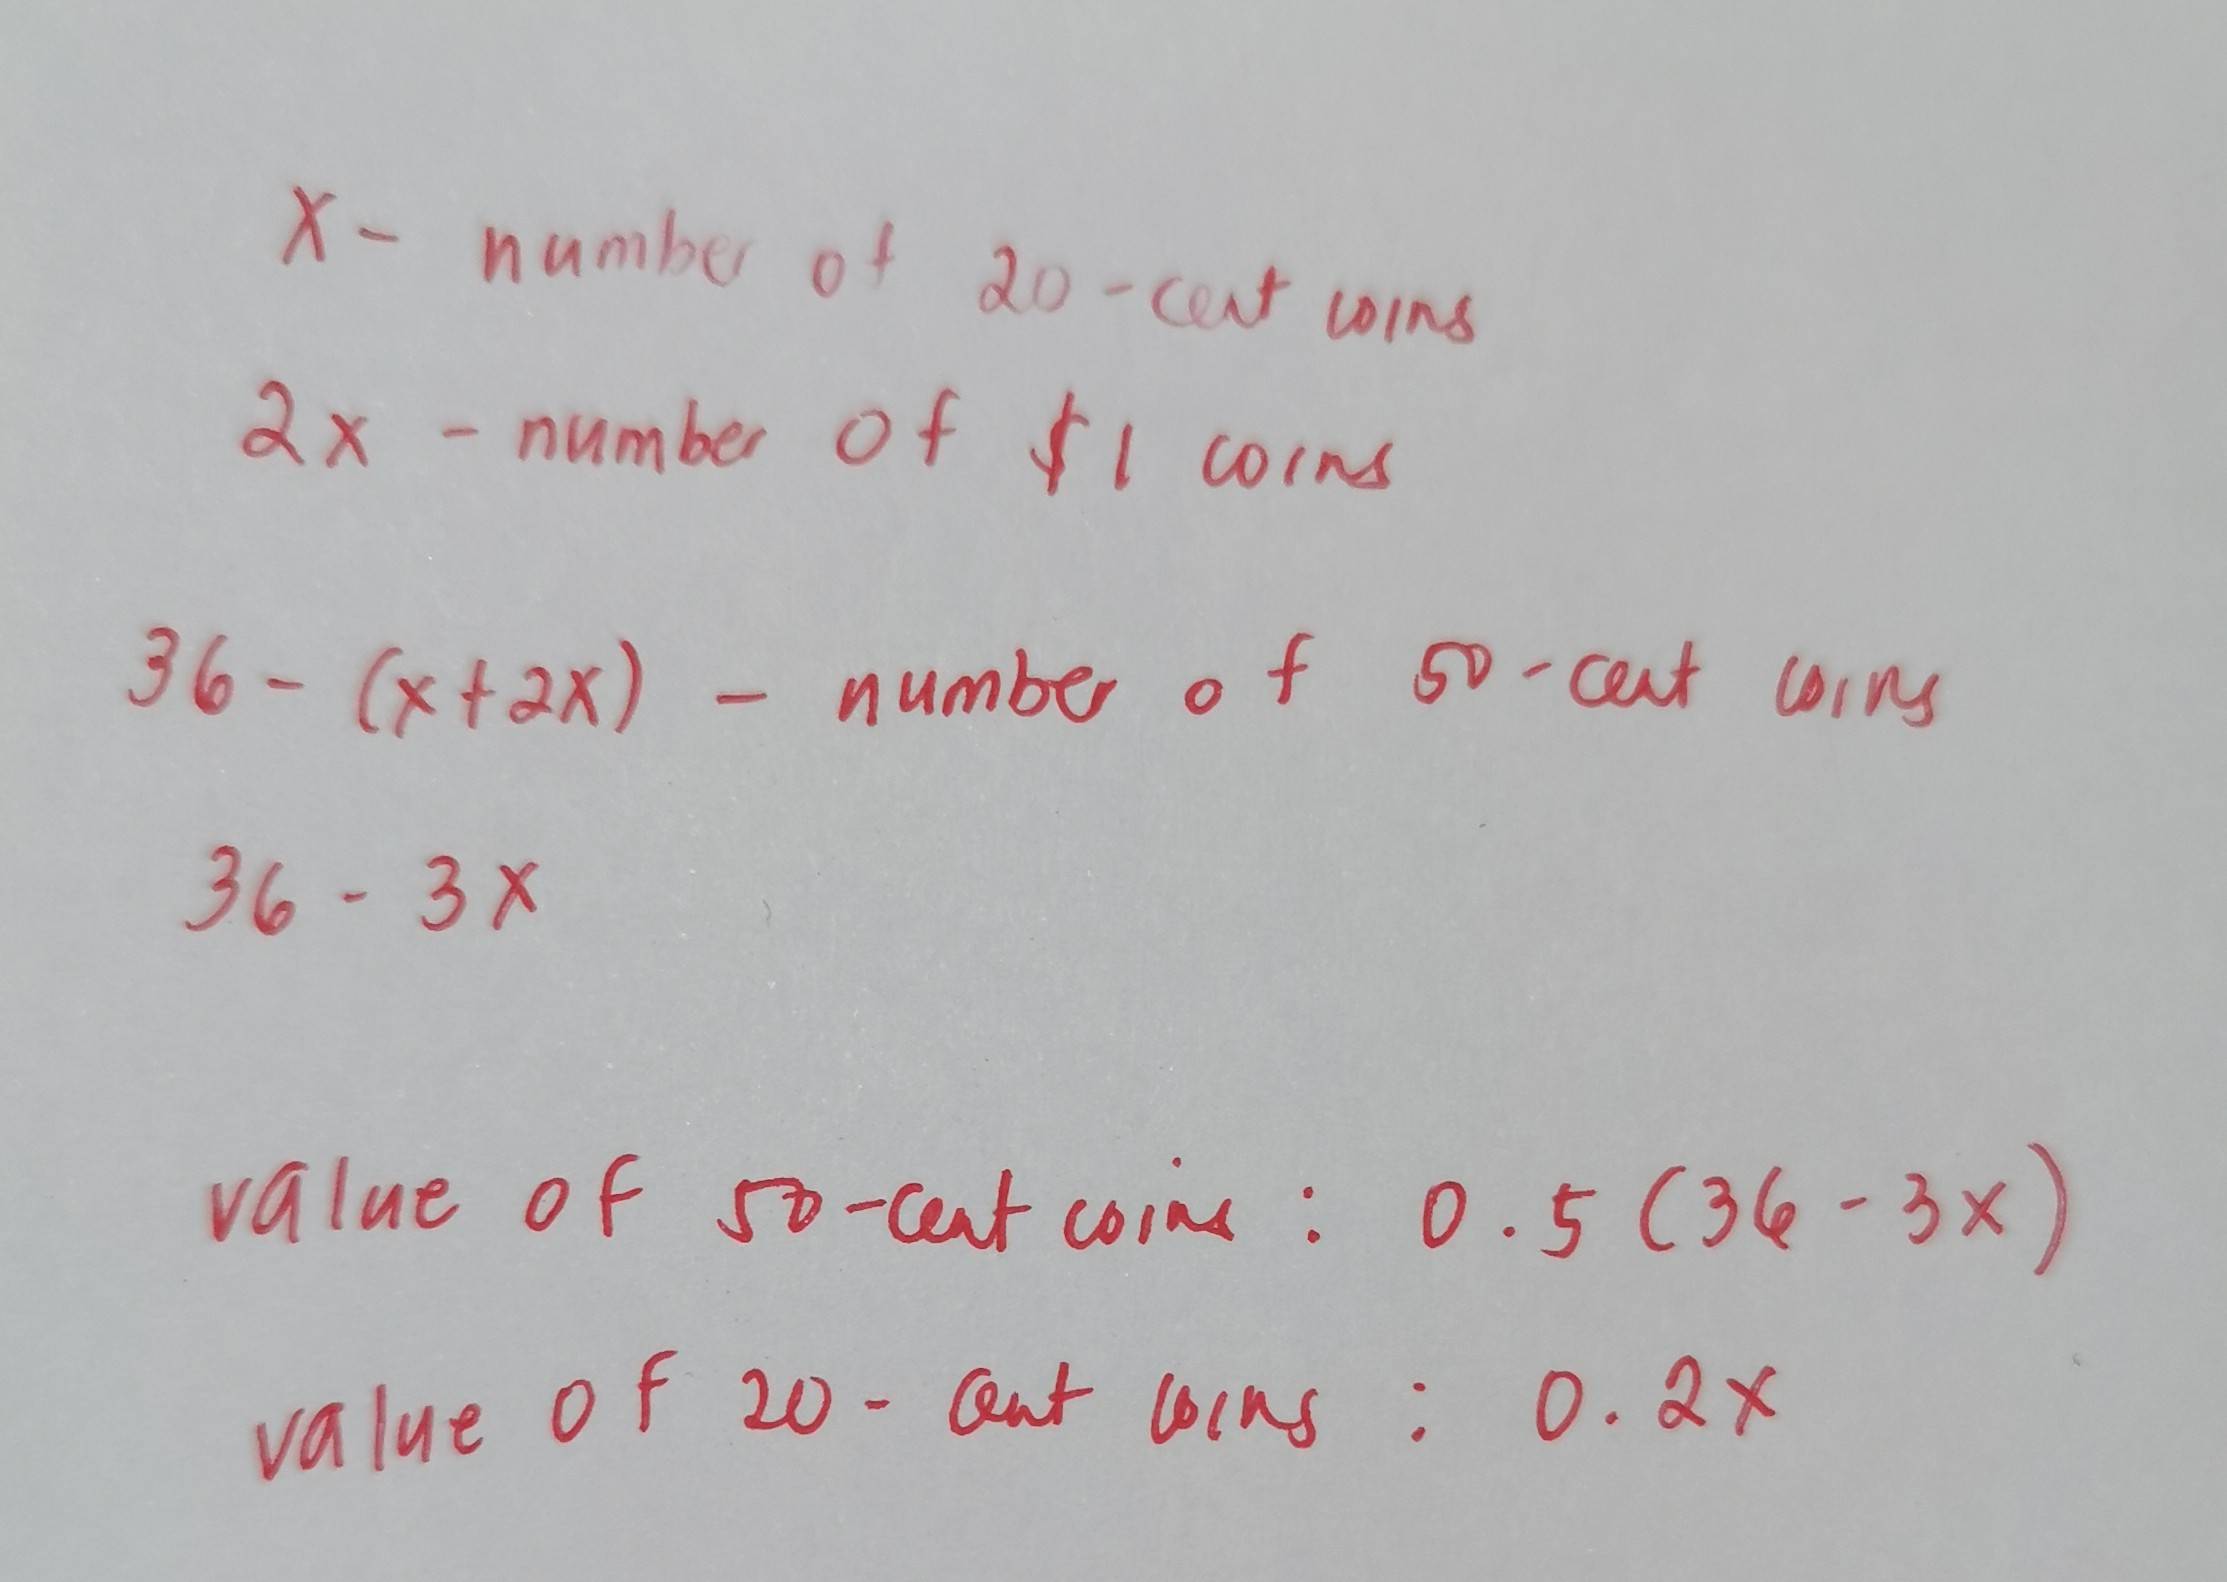 x - number of 20-cent coins
2x - number of $1 coins
36 - (x+2x) - number of 50-cent coins
36 - 3x
value of 50-cent coins : 0.5 (36 - 3x)
value of 20-cent coins : 0.2x